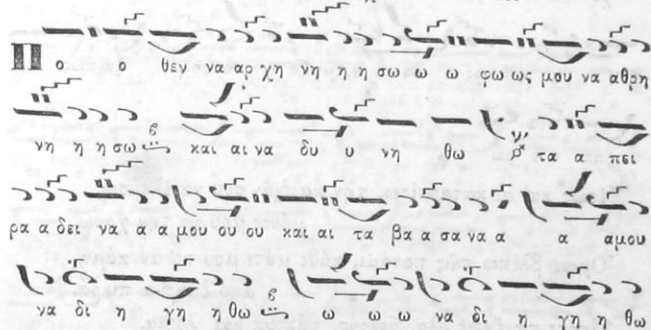 Πο ο θεν να αρ χη νη η η σω ω ω φω ως μου να αθρη
νη η η σω και αι να δυ υ νη θω τα α πει
ρα α δει να α α μου ου ου και αι τα βα α σα να α α αμου
να δι η γη η θω ω ω ω να δι η γη η θω